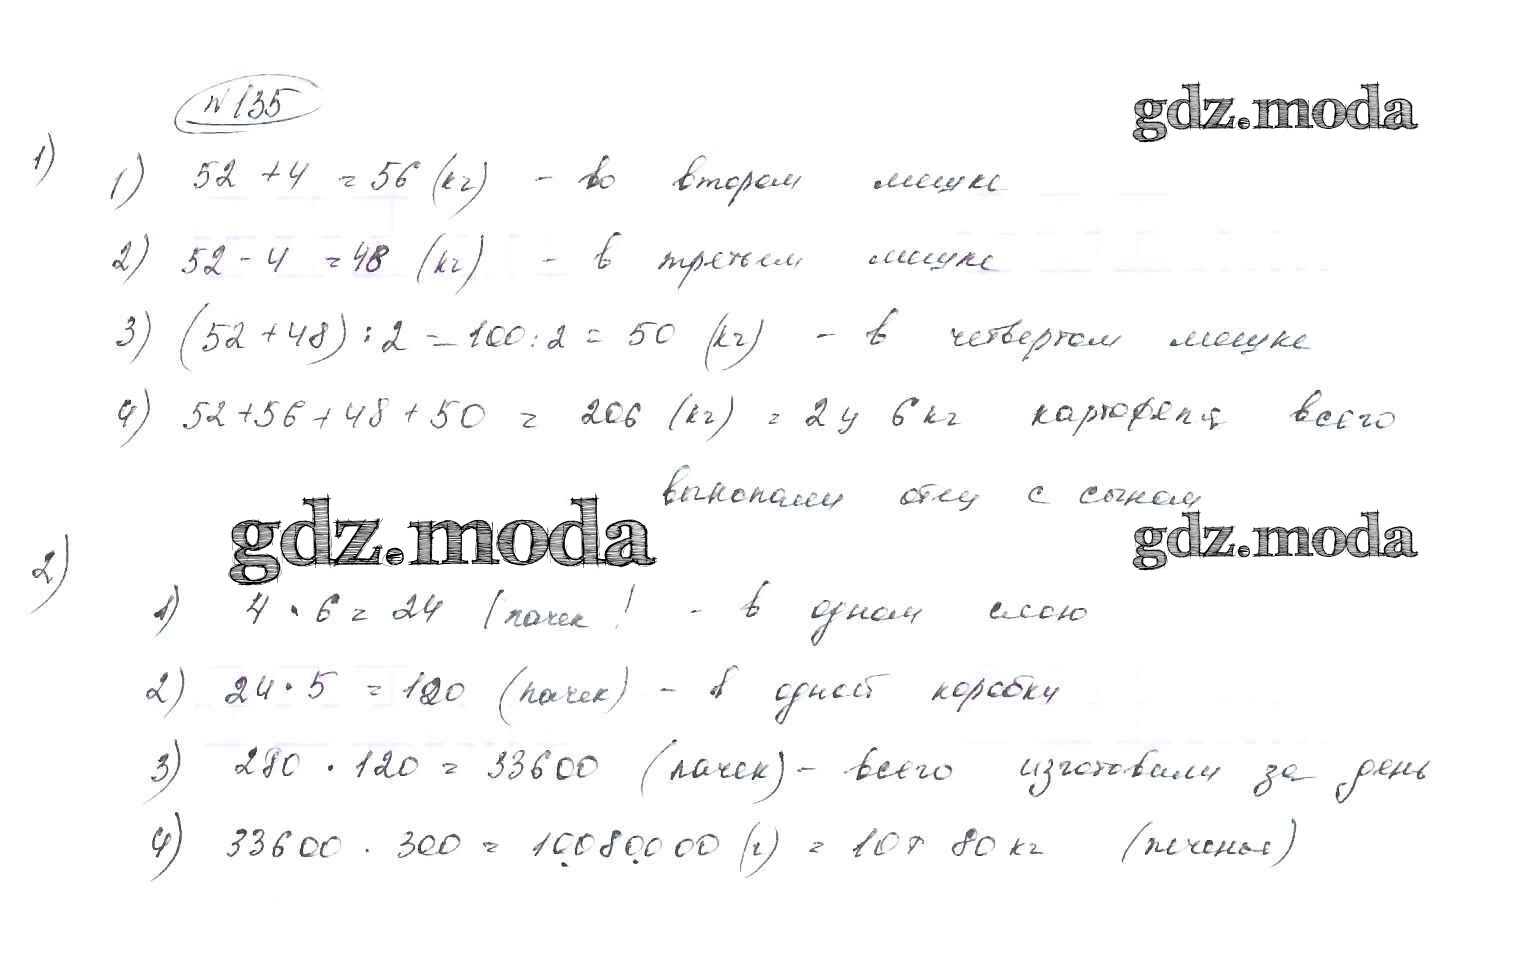 № 135
gdz.moda
1)
1) 52 + 4 = 56 (кг) - во втором мешке
2) 52 - 4 = 48 (кг) - в третьем мешке
3) (52 + 48) : 2 = 100 : 2 = 50 (кг) - в четвертом мешке
4) 52 + 56 + 48 + 50 = 206 (кг) = 2 ц 6 кг картофеля всего
выкопали отец с сыном
gdz.moda
gdz.moda
2)
1) 4 · 6 = 24 (пачек) - в одном слою
2) 24 · 5 = 120 (пачек) - в одной коробки
3) 280 · 120 = 33600 (пачек) - всего изготовили за день
4) 33600 · 300 = 10.080.000 (г) = 10 т 80 кг (печенья)